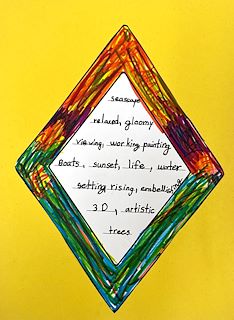 seascape
relaxed, gloomy
viewing, working painting
Boats, sunset, life, water
setting rising, embellishing
3D, artistic
trees